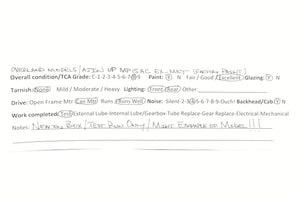 OVERLAND MODELS/AJIN UP MP15AC EX-MKT (FACTORY PAINT)
Overall condition/TCA Grade: C-1-2-3-4-5-6-7-8-9 Paint: Y N Fair / Good / Excellent Glazing: Y N
Tarnish: None / Mild / Moderate / Heavy Lighting: Front/Rear Other:
Drive: Open Frame Mtr Can Mtr Runs Runs Well Noise: Silent-2-3-4-5-6-7-8-9-Ouch! Backhead/Cab Y N
Work completed: Test External Lube-Internal Lube/Gearbox-Tube Replace-Gear Replace-Electrical-Mechanical
Notes: NEW IN BOX / TEST RUN ONLY / MINT EXAMPLE UP MODEL!!!